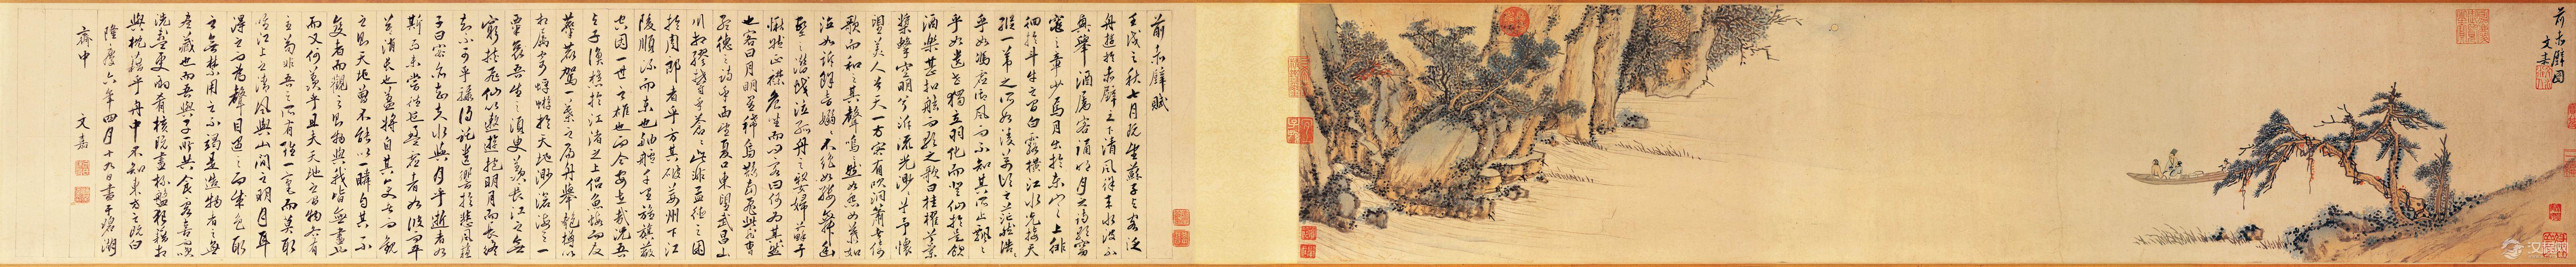 前赤壁圖
文嘉
前赤壁賦
壬戌之秋七月既望蘇子與客泛
舟遊於赤壁之下清風徐來水波不
興舉酒屬客誦明月之詩歌窈
窕之章少焉月出於東山之上徘
徊於斗牛之間白露橫江水光接天
縱一葦之所如凌萬頃之茫然浩浩
乎如馮虛御風而不知其所止飄飄
乎如遺世獨立羽化而登仙於是飲
酒樂甚扣舷而歌之歌曰桂櫂兮蘭
槳擊空明兮泝流光渺渺兮予懷
望美人兮天一方客有吹洞簫者倚
歌而和之其聲嗚嗚然如怨如慕如
泣如訴餘音嫋嫋不絕如縷舞幽
壑之潛蛟泣孤舟之嫠婦蘇子
愀然正襟危坐而問客曰何為其然
也客曰月明星稀烏鵲南飛此非曹
孟德之詩乎西望夏口東望武昌山
川相繆鬱乎蒼蒼此非孟德之困
於周郎者乎方其破荊州下江
陵順流而東也舳艫千里旌旗蔽
空固一世之雄也而今安在哉況吾
與子漁樵於江渚之上侶魚蝦而友
麋鹿駕一葉之扁舟舉匏樽以
相屬寄蜉蝣於天地渺滄海之一
粟哀吾生之須臾羨長江之無
窮挾飛仙以遨遊抱明月而長終
知不可乎驟得託遺響於悲風蘇
子曰客亦知夫水與月乎逝者如
斯而未嘗往也盈虛者如彼而卒
莫消長也蓋將自其變者而觀
之則天地曾不能以一瞬自其不
變者而觀之則物與我皆無盡也
而又何羨乎且夫天地之間物各有
主苟非吾之所有雖一毫而莫取
惟江上之清風與山間之明月耳
得之而為聲目遇之而成色取
之無禁用之不竭是造物者之無
盡藏也而吾與子所共食客喜而笑
洗盞更酌肴核既盡杯盤狼藉相
與枕藉乎舟中不知東方之既白
隆慶六年四月十九日書于湖
齋中 文嘉